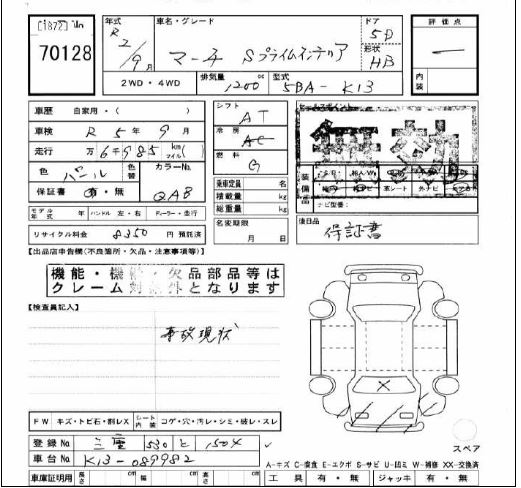 70128
年式 R2/9月
車名・グレード マーチ Sプライムインテリア
ドア 5D
形状 HB
評価点
内装
2WD・4WD 排気量 1200 cc 型式 5BA-K13
車歴 自家用・( )
車検 R 5年 9月
走行 万6千985 km マイル ( )
色 パール 色替 カラーNo. QAB
保証書 有・無
モデル年式 年 ハンドル 左・右 ディーラー・並行
リサイクル料金 8350 円預託済
シフト AT
冷房 AC
燃料 G
乗車定員 名
積載量 kg
総重量 kg
名変期限 月 日
セールスポイント
装備品
革シート
ナビ型番:
後日品 保証書
【出品店申告欄(不良箇所・欠品・注意事項等)】
機能・機関・欠品部品等は
クレーム対象外となります
【検査員記入】
事故現状
FW キズ・トビ石・割レX シート内装 コゲ・穴・汚レ・シミ・破レ・スレ
登録No 三重 530 と 1504
車台No K13-089982
車庫証明用 長さ cm 幅 cm 高さ cm
スペア
A-キズ C-腐食 E-エクボ S-サビ U-凹ミ W-補修 XX-交換済
工具 有・無 ジャッキ 有・無